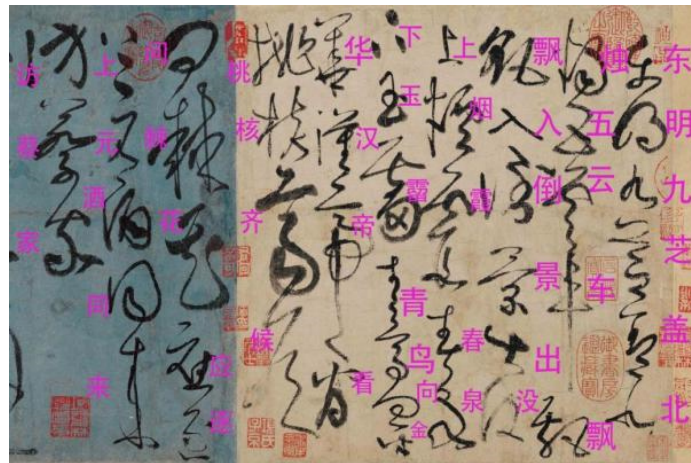 东明九芝盖北
烛五云车飘
飘入倒景出没
上烟霞春泉
下玉霤青鸟向金
华汉帝看
桃核齐候
问棘花应
上元酒同来
访蔡家